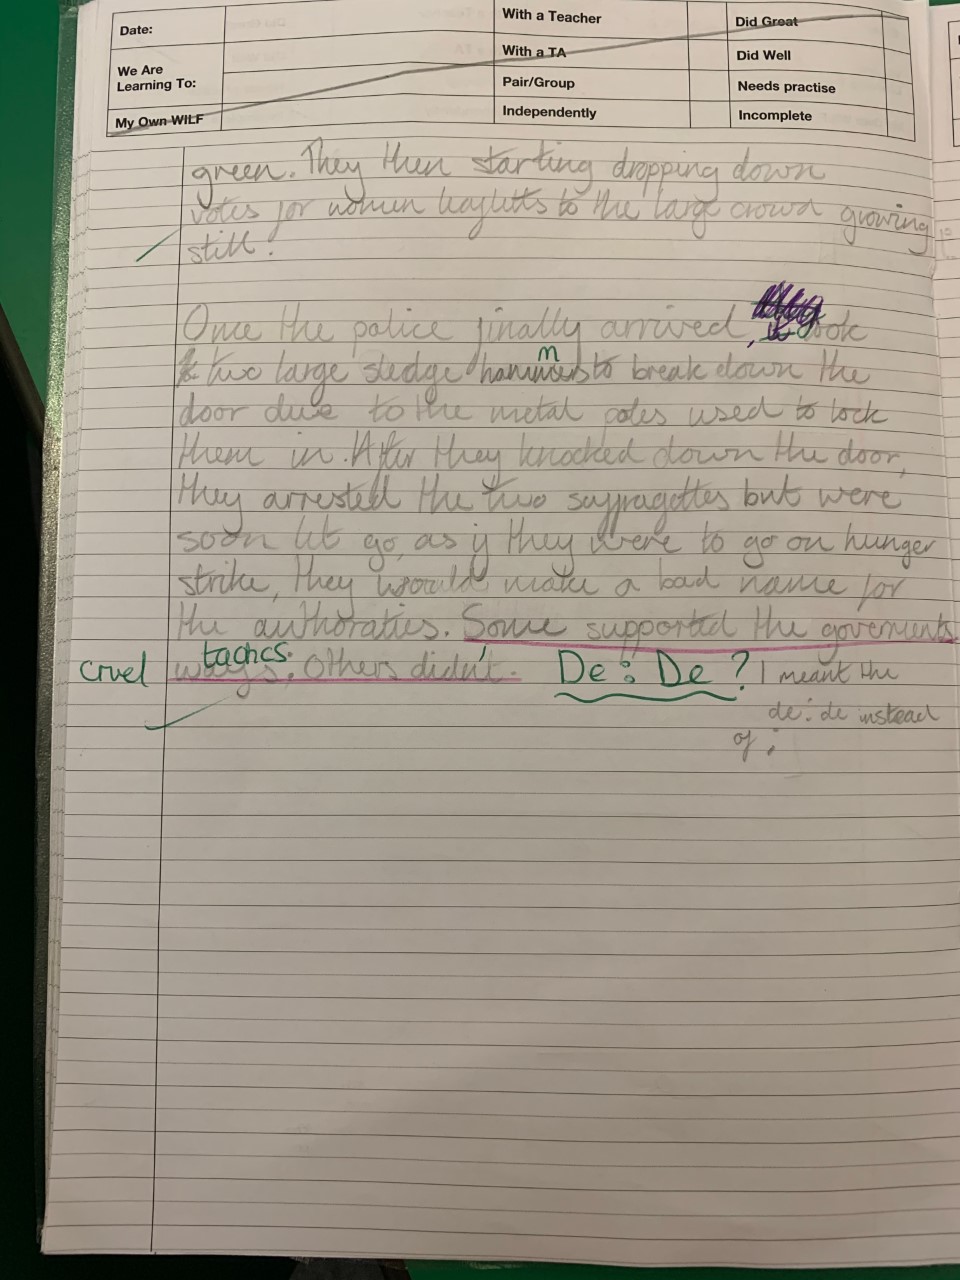 Date:
We Are
Learning To:
My Own WILF
With a Teacher
With a TA
Pair/Group
Independently
Did Great
Did Well
Needs practise
Incomplete
green. They then starting dropping down
votes for women leafletts to the large crowd growing
still.
Once the police finally arrived, it took
two large sledge hammers to break down the
door due to the metal poles used to lock
them in. After they knocked down the door,
they arrested the two suffragettes but were
soon let go, as if they were to go on hunger
strike, they would make a bad name for
the authoraties. Some supported the goverments
cruel ways; Others didn't. De: De? I meant the
tactics.
de: de instead
of ;